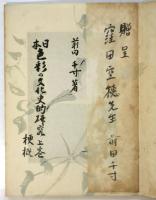 贈呈
窪田空穂先生
前田千寸
前田千寸著
日本色彩の文化史的研究 上巻
梗概